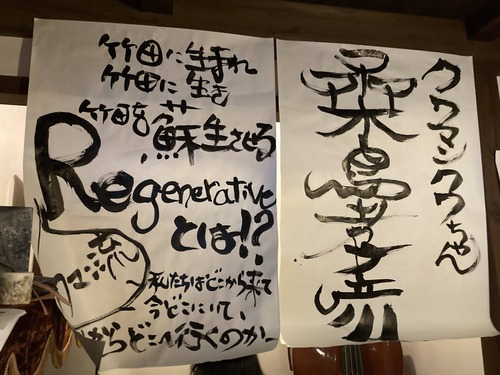 竹田に生まれ
竹田に生き
竹田を蘇生させる
Regenerative
とは!?
流
〜私たちはどこから来て
今どこにいて、
からどこへ行くのか〜
クワマンクワちゃん
桑